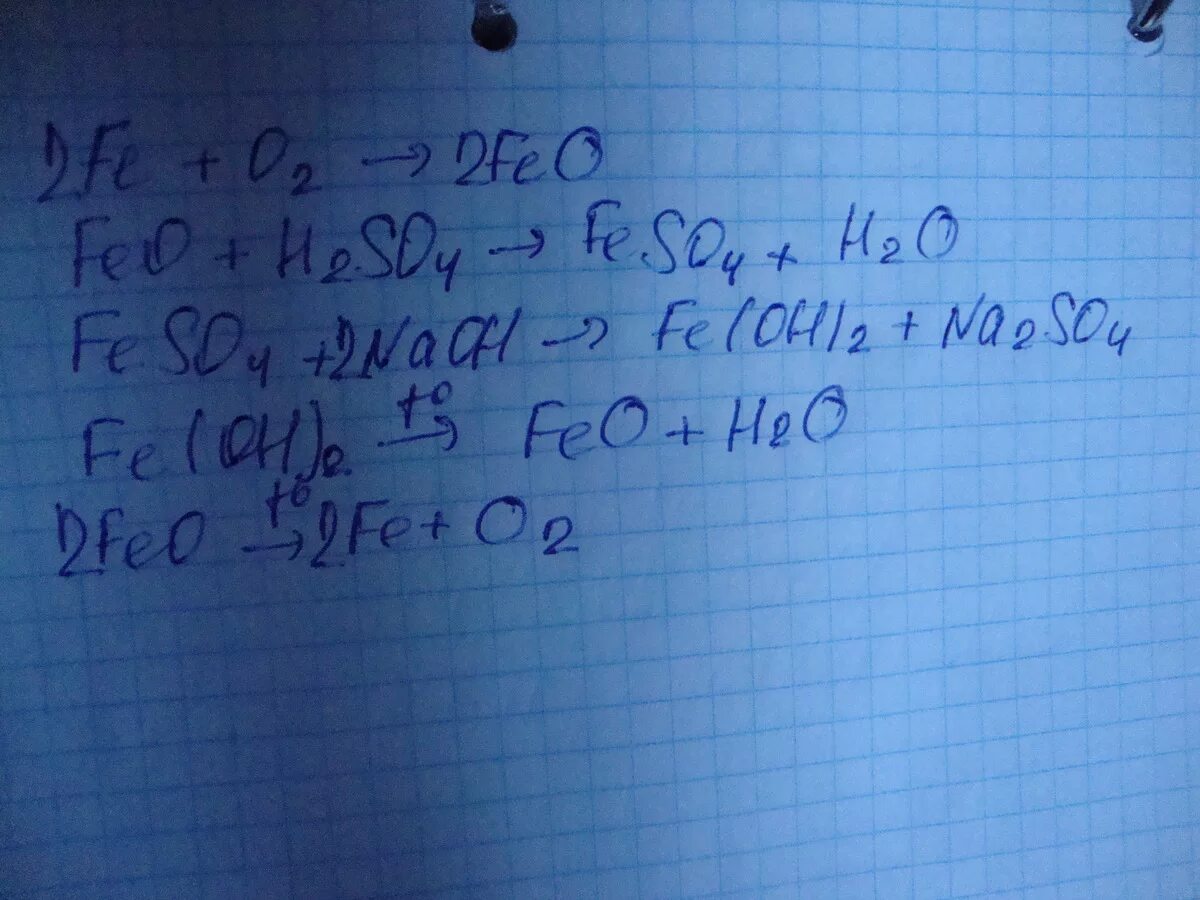 2Fe + O₂ → 2FeO
FeO + H₂SO₄ → FeSO₄ + H₂O
FeSO₄ + 2NaOH → Fe(OH)₂ + Na₂SO₄
Fe(OH)₂ t° → FeO + H₂O
2FeO t° → 2Fe + O₂